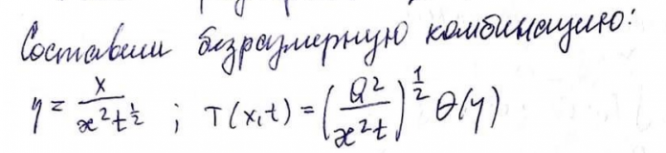 Составим безразмерную комбинацию:
y = x / æ²t^½ ; T(x,t) = (Q² / æ²t)^½ Θ(y)